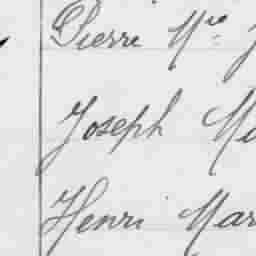 Pierre M
Joseph Ma
Henri Mar